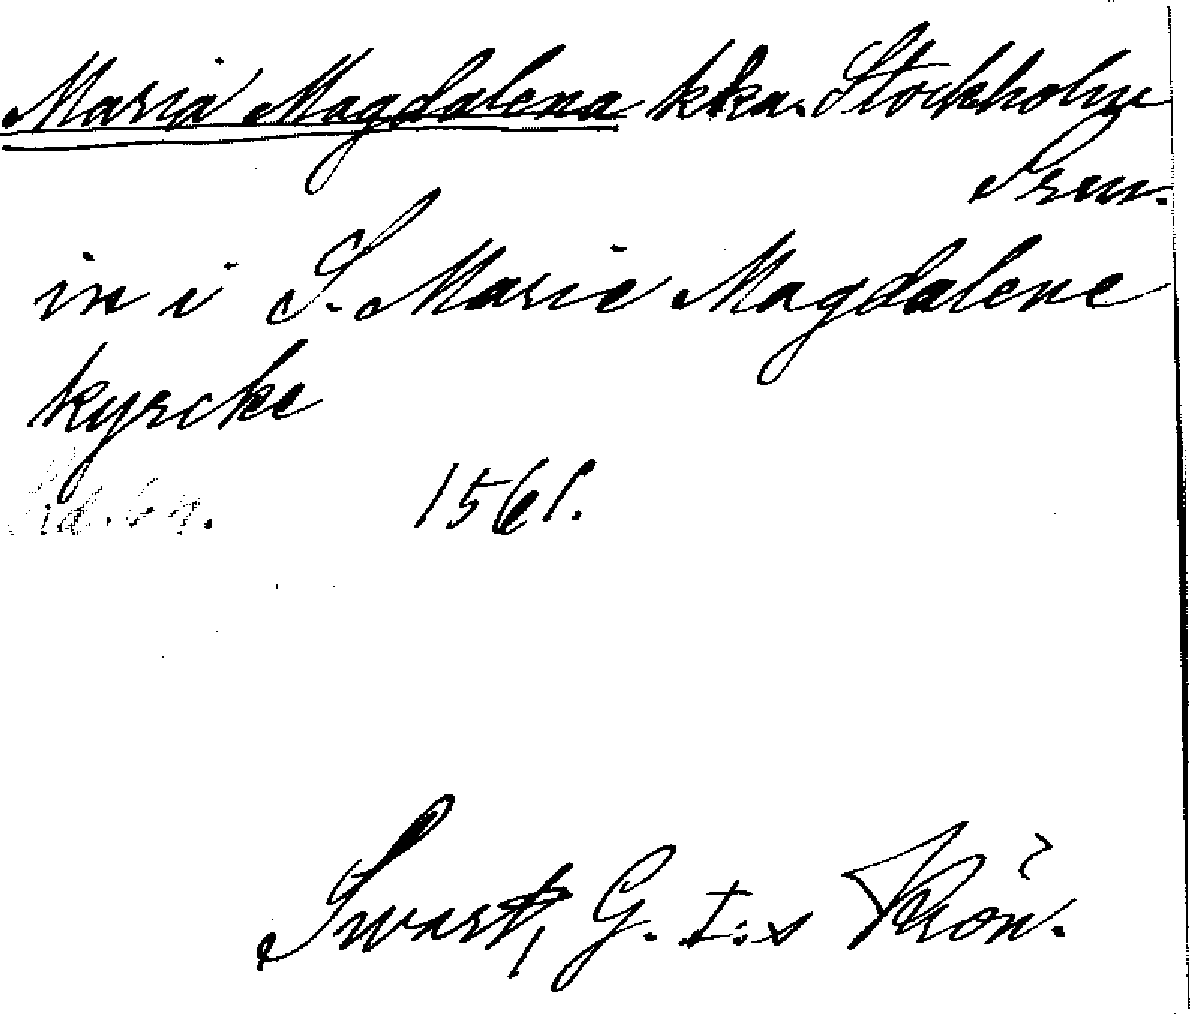 Maria Magdalena kka. Stockholm
in i S. Marie Magdalene
kyrcke
1561.
Swart, G. I:s Krön.